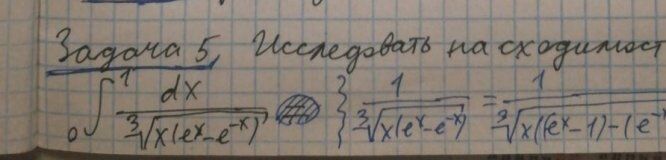 Задача 5, Исследовать на сходимост
₀∫¹ dx / ∛(x(eˣ-e⁻ˣ)) } 1 / ∛(x(eˣ-e⁻ˣ)) = 1 / ∛(x((eˣ-1)-(e⁻ˣ